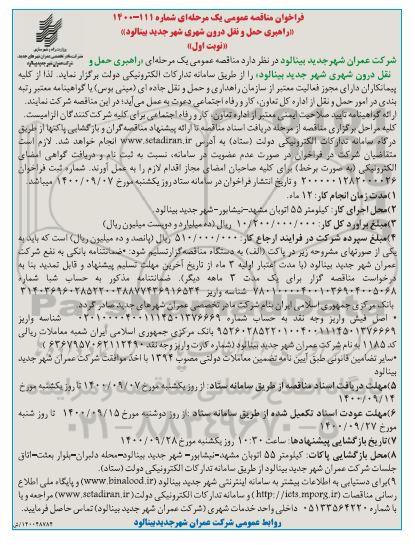 فراخوان مناقصه عمومی یک مرحله‌ای شماره ۱۱۱-۱۴۰۰
«راهبری حمل و نقل درون شهری شهر جدید بینالود»
«نوبت اول»
شرکت عمران شهرجدید بینالود در نظر دارد مناقصه عمومی یک مرحله‌ای «راهبری حمل و
نقل درون شهری شهر جدید بینالود» را از طریق سامانه تدارکات الکترونیکی دولت برگزار نماید. لذا از کلیه
پیمانکاران دارای مجوز فعالیت معتبر از سازمان راهداری و حمل و نقل جاده ای (مینی بوس) یا گواهینامه معتبر رتبه
بندی در امور حمل و نقل از اداره کل تعاون، کار و رفاه اجتماعی دعوت به عمل می‌آید؛ در این مناقصه شرکت نمایند.
ارائه گواهینامه تایید صلاحیت ایمنی معتبر از اداره تعاون، کار و رفاه اجتماعی برای کلیه شرکت‌کنندگان الزامیست.
کلیه مراحل برگزاری مناقصه از مرحله دریافت اسناد مناقصه تا ارائه پیشنهاد مناقصه‌گران و بازگشایی پاکتها از طریق
درگاه سامانه تدارکات الکترونیکی دولت (ستاد) به آدرس www.setadiran.ir انجام خواهد شد. لازم است
متقاضیان شرکت در فراخوان در صورت عدم عضویت در سامانه، نسبت به ثبت نام و دریافت گواهی امضای
الکترونیکی (به صورت برخط) برای کلیه صاحبان امضای مجاز اقدام لازم را به عمل آورند. شماره ثبت فراخوان
و تاریخ انتشار فراخوان در سامانه ستاد روز یکشنبه مورخ ۱۴۰۰/۰۹/۰۷ میباشد.
۱)مدت زمان انجام کار: ۱۲ ماه.
۲)محل اجرای کار: کیلومتر ۵۵ اتوبان مشهد-نیشابور-شهر جدید بینالود.
۳)مبلغ برآورد کل کار: ۱۰/۲۰۰/۰۰۰/۰۰۰ ریال (ده میلیارد و دویست میلیون ریال)
۴)مبلغ سپرده شرکت در فرایند ارجاع کار: ۵۱۰/۰۰۰/۰۰۰ ریال (پانصد و ده میلیون ریال) است که باید به
یکی از صورتهای مشروحه زیر در پاکت (الف) به دستگاه مناقصه‌گزار تسلیم شود: *ضمانتنامه بانکی به نفع شرکت
عمران شهر جدید بینالود (با مدت اعتبار اولیه ۳ ماه از تاریخ آخرین مهلت تسلیم پیشنهاد و قابل تمدید بنا به
درخواست مناقصه گزار برای یک مدت ۳ ماهه دیگر). ضمانتنامه مذکور به حساب شبا شماره
بانک مرکزی جمهوری اسلامی ایران بنام شرکت مادر تخصصی عمران شهرهای جدید صادر گردد.
* اصل فیش واریز وجه نقد به حساب شماره
بانک مرکزی جمهوری اسلامی ایران شعبه معاملات ریالی
کد ۱۱۸۵ به نام شرکت عمران شهر جدید بینالود
* سایر تضامین قانونی طبق آیین نامه تضمین معاملات دولتی مصوب ۱۳۹۴ با اخذ موافقت شرکت عمران شهر جدید
بینالود
۵)مهلت دریافت اسناد مناقصه از طریق سامانه ستاد: از روز یکشنبه مورخ ۱۴۰۰/۰۹/۰۷ تا روز یکشنبه مورخ
۱۴۰۰/۰۹/۱۴
۶)مهلت عودت اسناد تکمیل شده از طریق سامانه ستاد: از روز دوشنبه مورخ ۱۴۰۰/۰۹/۱۵ تا روز شنبه
مورخ ۱۴۰۰/۰۹/۲۷
۷)تاریخ بازگشایی پیشنهادها: ساعت ۱۰:۳۰ روز یکشنبه مورخ ۱۴۰۰/۰۹/۲۸
۸)محل بازگشایی پاکات: کیلومتر ۵۵ اتوبان مشهد-نیشابور- شهر جدید بینالود-محله دلبران-بلوار بعثت-اتاق
جلسات شرکت عمران شهر جدید بینالود از طریق سامانه تدارکات الکترونیکی دولت (ستاد).
۹)برای دستیابی به اطلاعات بیشتر به سامانه اینترنتی شهر جدید بینالود (www.binalood.ir) و پایگاه ملی اطلاع
رسانی مناقصات (http://iets.mporg.ir) و سامانه تدارکات الکترونیکی دولت (www.setadiran.ir) مراجعه و یا
با شماره ۰۵۱۳۳۵۶۴۲۲۰ داخلی واحد خدمات شهری (شرکت عمران شهر جدید بینالود) تماس حاصل فرمایید.
روابط عمومی شرکت عمران شهرجدیدبینالود